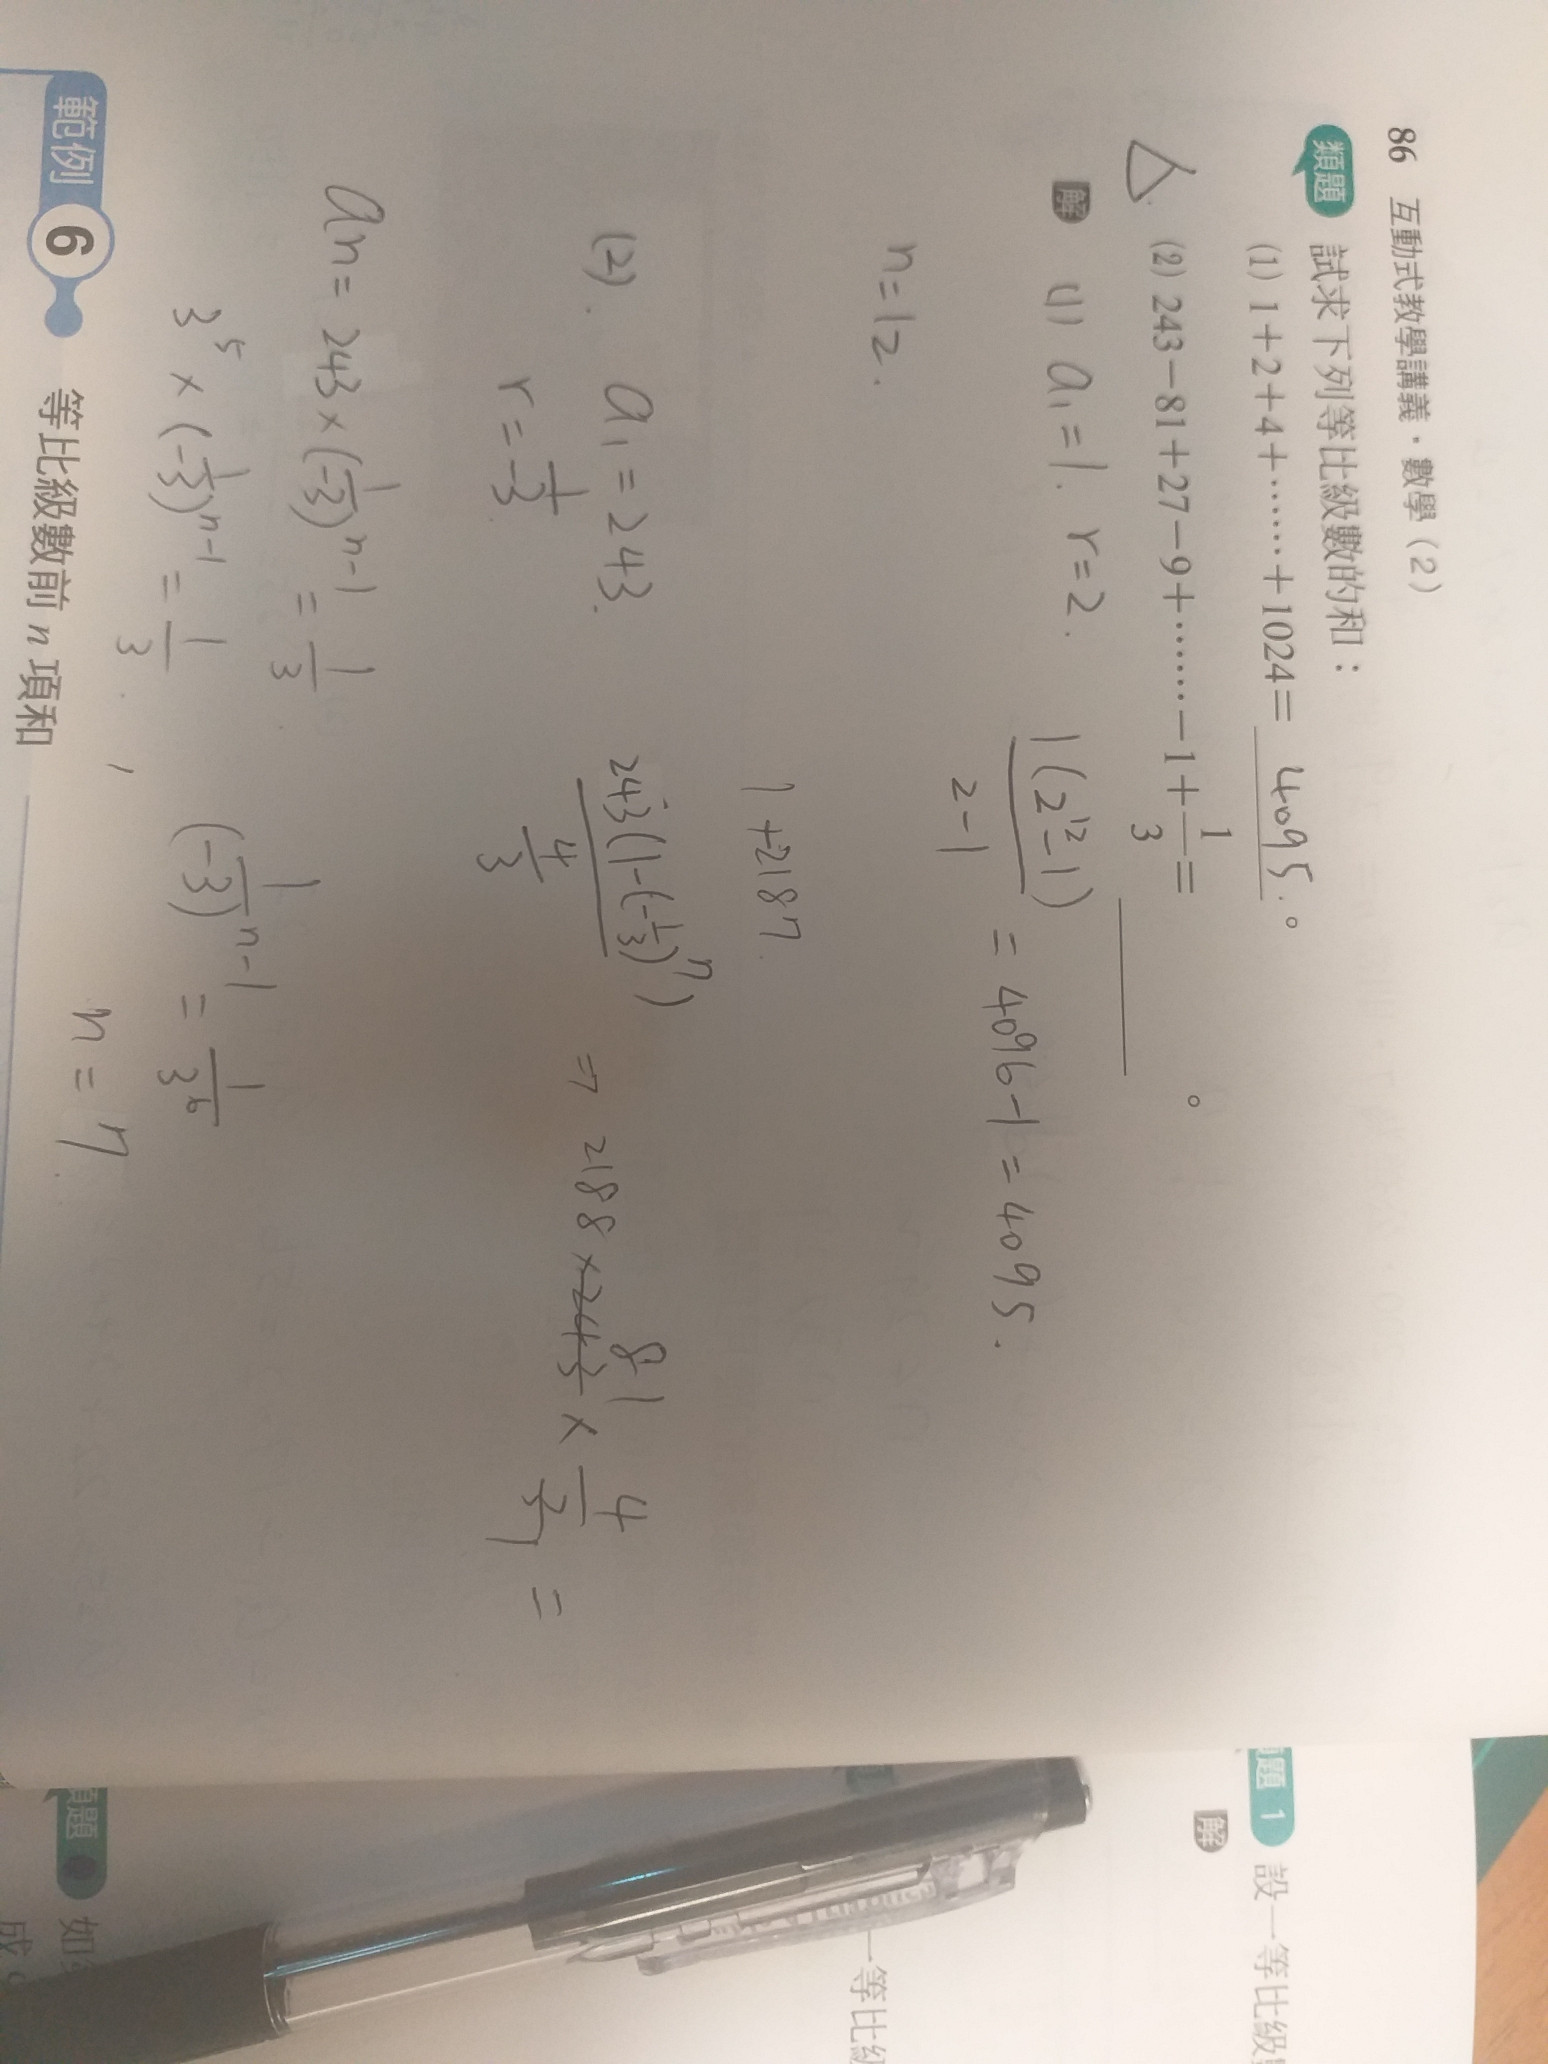 86 互動式教學講義·數學（2）
類題 試求下列等比級數的和：
(1) 1+2+4+……+1024= 4095.。
(2) 243-81+27-9+……-1+1/3= ______。
解 (1) a₁=1. r=2.
1(2¹²-1)/2-1 = 4096-1=4095.
n=12.
1+2187.
(2). a₁=243.
r=-1/3
243(1-(-1/3)ⁿ)/(4/3) => 2188×243×4/3 =
81
aₙ=243×(-1/3)ⁿ⁻¹=1/3.
3⁵×(-1/3)ⁿ⁻¹=1/3. , (-1/3)ⁿ⁻¹=1/3⁶
n=7.
範例 6 等比級數前 n 項和
題 1 設一等比級
解
一等比級
類題
如
成